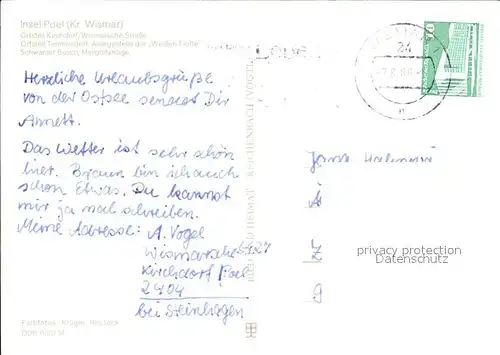 Insel Poel (Kr. Wismar)
Ortsteil Kirchdorf, Wismarsche Straße
Ortsteil Timmendorf, Anlegestelle der „Weißen Flotte“
Schwarzer Busch, Minigolfanlage
24
Herzliche Urlaubsgrüße
von der Ostsee sendet Dir
Annett.
Das Wetter ist sehr schön
hier. Braun bin ich auch
schon etwas. Du kannst
mir ja mal schreiben.
Meine Adresse: A. Vogel
Wismarsche
Kirchdorf/Poel
2404
bei Steinhagen
BILD UND HEIMAT REICHENBACH (VOGTL)
privacy protection
Daten-Schutz
Farbfotos: Krüger, Rostock